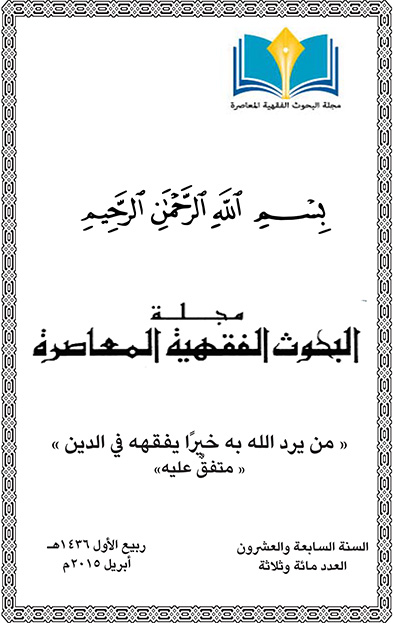 مجلة البحوث الفقهية المعاصرة
بِسْمِ ٱللَّهِ ٱلرَّحْمَٰنِ ٱلرَّحِيمِ
مجلة
البحوث الفقهية المعاصرة
« من يرد الله به خيرًا يفقهه في الدين »
« متفقٌ عليه»
السنة السابعة والعشرون
العدد مائة وثلاثة
ربيع الأول ١٤٣٦هـ
أبريل ٢٠١٥م